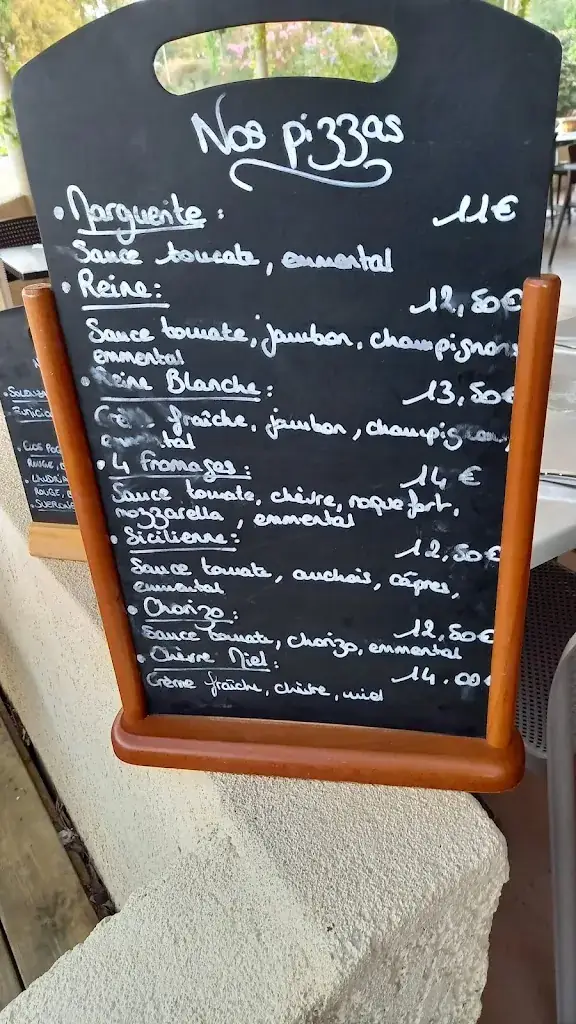 Nos pizzas
• Marguerite : 11€
Sauce tomate, emmental
• Reine : 12,50€
Sauce tomate, jambon, champignons
emmental
• Reine Blanche : 13,50€
Crème fraîche, jambon, champignons,
emmental
• 4 Fromages : 14 €
Sauce tomate, chèvre, roquefort,
mozzarella, emmental
• Sicilienne : 12,50€
Sauce tomate, anchois, câpres,
emmental
• Chorizo : 12,50€
Sauce tomate, chorizo, emmental
• Chèvre Miel : 14.00€
Crème fraîche, chèvre, miel